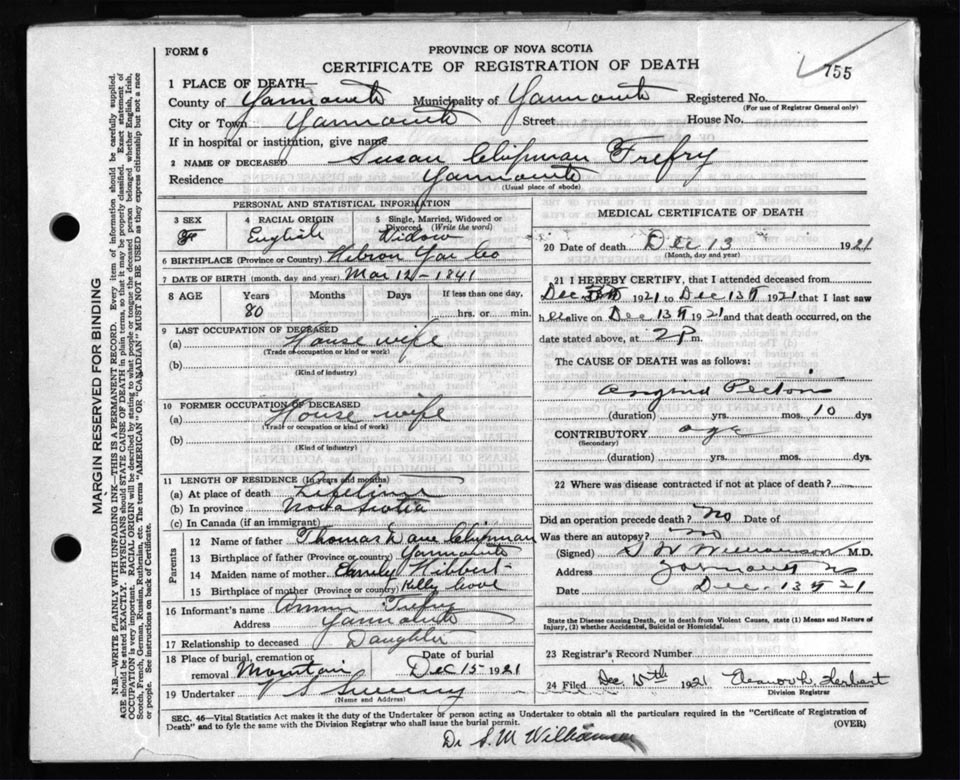 FORM 6
PROVINCE OF NOVA SCOTIA
CERTIFICATE OF REGISTRATION OF DEATH
755
1 PLACE OF DEATH—
County of Yarmouth Municipality of Yarmouth Registered No.
(For use of Registrar General only)
City or Town Yarmouth Street. House No.
If in hospital or institution, give name
2 NAME OF DECEASED Susan Chipman Trefry
Residence Yarmouth
(Usual place of abode)
PERSONAL AND STATISTICAL INFORMATION
3 SEX 4 RACIAL ORIGIN 5 Single, Married, Widowed or Divorced (Write the word)
F English Widow
6 BIRTHPLACE (Province or Country) Hebron Yar Co
7 DATE OF BIRTH (month, day and year) Mar 12 - 1841
8 AGE Years Months Days If less than one day,
80 hrs. or min.
9 LAST OCCUPATION OF DECEASED
(a) House wife
(Trade or occupation or kind or work)
(b)
(Kind of industry)
10 FORMER OCCUPATION OF DECEASED
(a) House wife
(Trade or occupation or kind of work)
(b)
(Kind of industry)
11 LENGTH OF RESIDENCE (In years and months)
(a) At place of death Lifetime
(b) In province Nova Scotia
(c) In Canada (if an immigrant)
Parents
12 Name of father Thomas Dane Chipman
13 Birthplace of father (Province or country) Yarmouth
14 Maiden name of mother Emily Hibbert
15 Birthplace of mother (Province or country) Kelly Cove
16 Informant's name Trefry
Address Yarmouth
17 Relationship to deceased Daughter
18 Place of burial, cremation or removal Mountain
Date of burial Dec 15 1921
19 Undertaker S Sweeny
(Name and Address)
MEDICAL CERTIFICATE OF DEATH
20 Date of death Dec 13 1921
(Month, day and year)
21 I HEREBY CERTIFY, that I attended deceased from
Dec 1921 to Dec 13th 1921 that I last saw
her alive on Dec 13th 1921 and that death occurred, on the
date stated above, at 2 P m.
The CAUSE OF DEATH was as follows:
Angina Pectoris
(duration) yrs. mos. 10 dys
CONTRIBUTORY age
(Secondary)
(duration) yrs. mos. dys.
22 Where was disease contracted if not at place of death?
Did an operation precede death? No Date of
Was there an autopsy? No
(Signed) S W Williamson M.D.
Address Yarmouth NS
Date Dec 13th 21
State the Disease causing Death, or in death from Violent Causes, state (1) Means and Nature of Injury, (2) whether Accidental, Suicidal or Homicidal.
23 Registrar's Record Number
24 Filed Dec. 1921
Division Registrar
SEC. 46—Vital Statistics Act makes it the duty of the Undertaker or person acting as Undertaker to obtain all the particulars required in the "Certificate of Registration of
Death" and to fyle the same with the Division Registrar who shall issue the burial permit.
(OVER)
Dr S. M Williamson
MARGIN RESERVED FOR BINDING
N.B.—WRITE PLAINLY WITH UNFADING INK—THIS IS A PERMANENT RECORD. Every item of information should be carefully supplied.
AGE should be stated EXACTLY. PHYSICIANS should STATE CAUSE OF DEATH in plain terms, so that it may be properly classified. Exact statement of
OCCUPATION is very important. RACIAL ORIGIN will be described by stating to what people or tongue the deceased person belonged whether English, Irish,
Scotch, French, German, Russian, Ruthenian, etc. The terms "AMERICAN" OR "CANADIAN" MUST NOT BE USED as they express citizenship but not a race
or people. See instructions on back of Certificate.